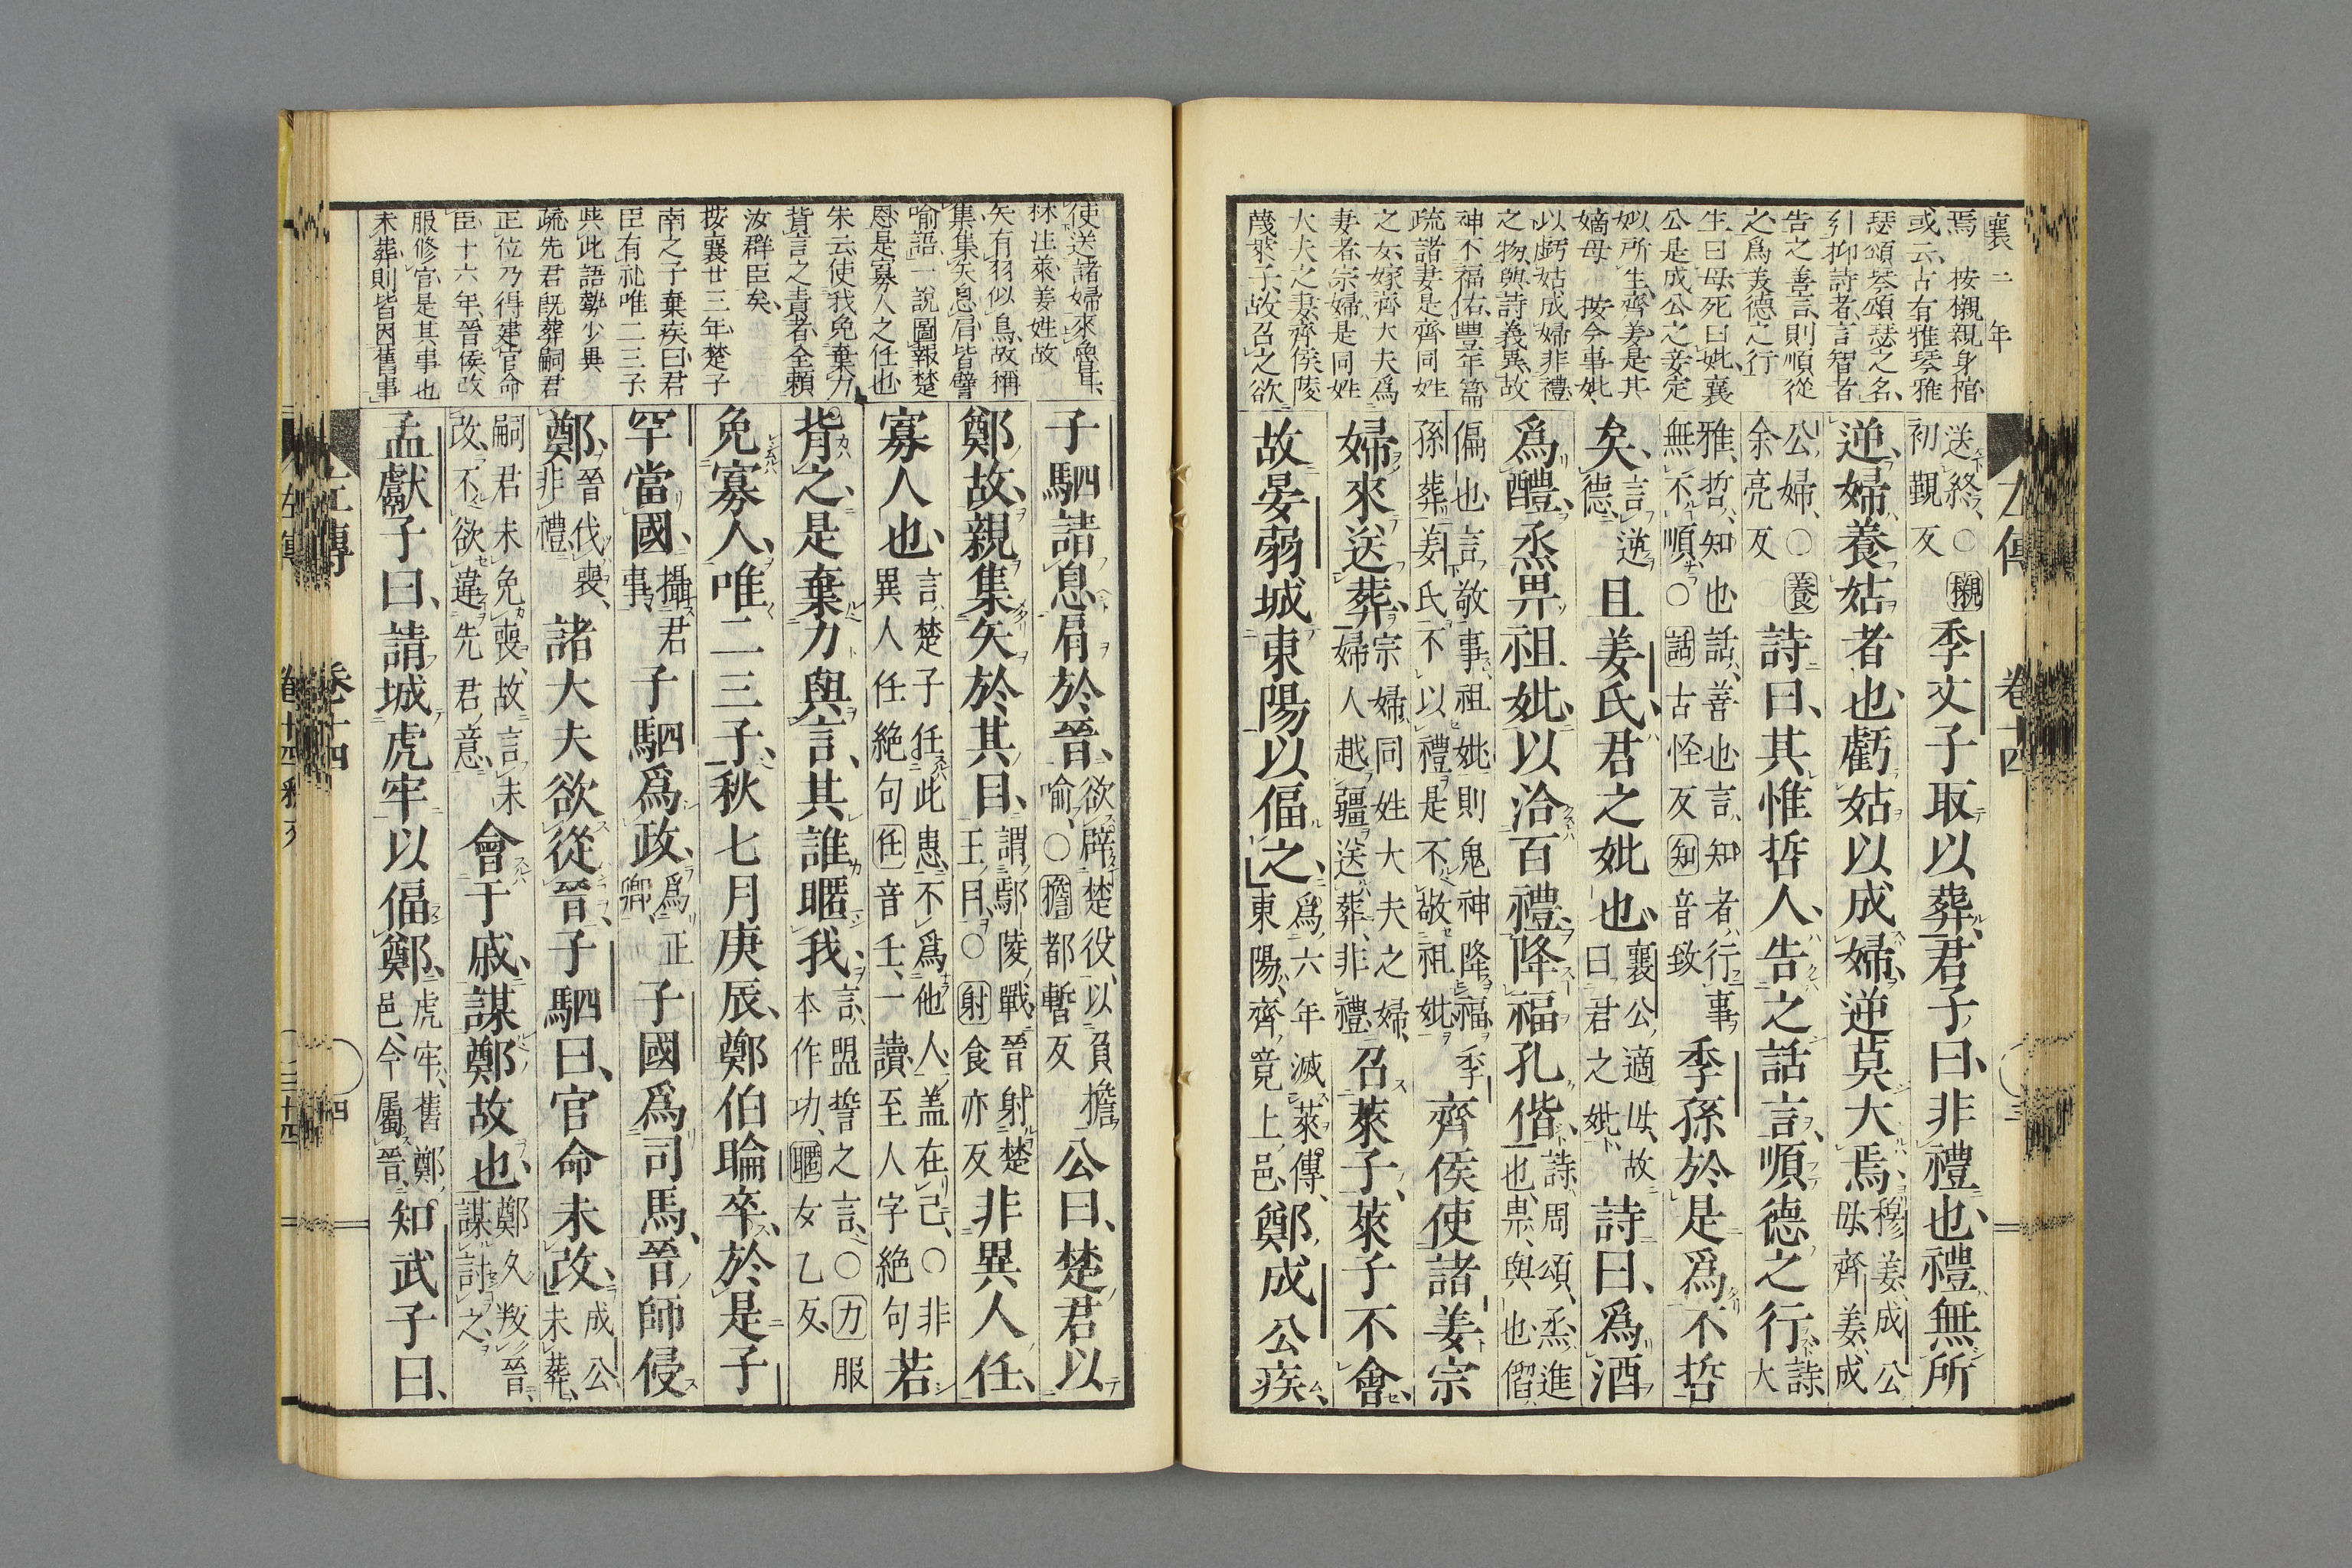 襄二年
焉 按櫬親身棺
或云古有雅琴雅
瑟頌琴頌瑟之名
引抑詩者言智者
告之善言則順從
之爲美德之行
生曰母死曰妣襄
公是成公之妾定
姒所生齊姜是其
嫡母 按今事妣
以虧姑成婦非禮
之物與詩義異故
神不福佑豐年篇
疏諸妻是齊同姓
之女嫁齊大夫爲
妻者宗婦是同姓
大夫之妻齊侯陵
蔑萊子故召之欲
送終○櫬
初覲反
季文子取以葬君子曰非禮也禮無所
逆婦養姑者也虧姑以成婦逆莫大焉
穆姜成公
母齊姜成
公婦○養
余亮反
詩曰其惟哲人告之話言順德之行
詩大
雅哲知也話善也言知者行事
無不順○話古怪反知音致
季孫於是爲不哲
矣
言逆
德
且姜氏君之妣也
襄公適母故
曰君之妣
詩曰爲酒
爲醴烝畀祖妣以洽百禮降福孔偕
詩周頌烝進
也畀與也偕
偏也言敬事祖妣則鬼神降福季
孫葬姜氏不以禮是不敬祖妣
齊侯使諸姜宗
婦來送葬
宗婦同姓大夫之婦
婦人越疆送葬非禮
召萊子萊子不會
故晏弱城東陽以偪之
爲六年滅萊傳
東陽齊竟上邑
鄭成公疾
左傳 卷十四
使送諸婦來魯耳
林注萊姜姓故
矢有羽似鳥故稱
集集矢息肩皆譬
喻語 一說圖報楚
恩是寡人之任也
朱云使我免棄力
背言之責者全賴
汝群臣矣
按襄廿三年楚子
南之子棄疾曰君
臣有礼唯二三子
與此語勢少異
疏先君既葬嗣君
正位乃得建官命
臣十六年晉侯改
服修官是其事也
未葬則皆因舊事
子駟請息肩於晉
欲辟楚役以負擔
喻○擔都暫反
公曰楚君以
鄭故親集矢於其目
謂鄢陵戰晉射楚
王目○射食亦反
非異人任
寡人也
言楚子任此患不爲他人蓋在己○非
異人任絶句任音壬一讀至人字絶句
若
背之是棄力與言其誰暱我
言盟誓之言○力服
本作功暱女乙反
免寡人唯二三子秋七月庚辰鄭伯睔卒於是子
罕當國
攝君
事
子駟爲政
爲正
卿
子國爲司馬晉師侵
鄭
晉伐喪
非禮
諸大夫欲從晉子駟曰官命未改
成公
未葬
嗣君未免喪故言未
改不欲違先君意
會于戚謀鄭故也
鄭久叛晉
謀討之
孟獻子曰請城虎牢以偪鄭
虎牢舊鄭
邑今屬晉
知武子曰
左傳 卷十四 四